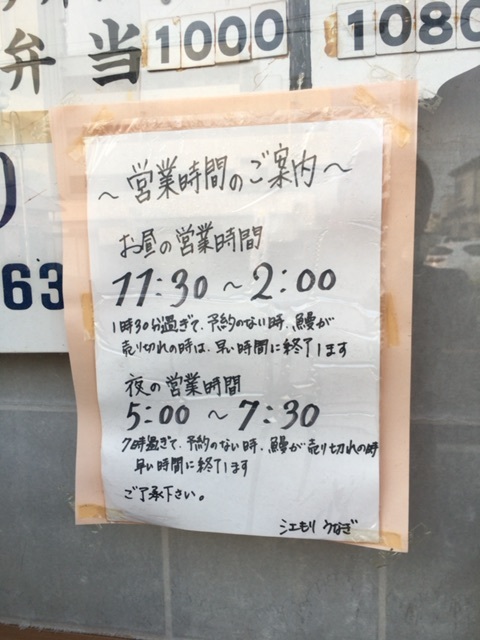 弁当 1000
1080
63
～営業時間のご案内～
お昼の営業時間
11:30 ～ 2:00
1時30分過ぎて、予約のない時、鰻が
売り切れの時は、早い時間に終了します
夜の営業時間
5:00 ～ 7:30
7時過ぎて、予約のない時、鰻が売り切れの時
早い時間に終了します
ご了承下さい。
うなぎ